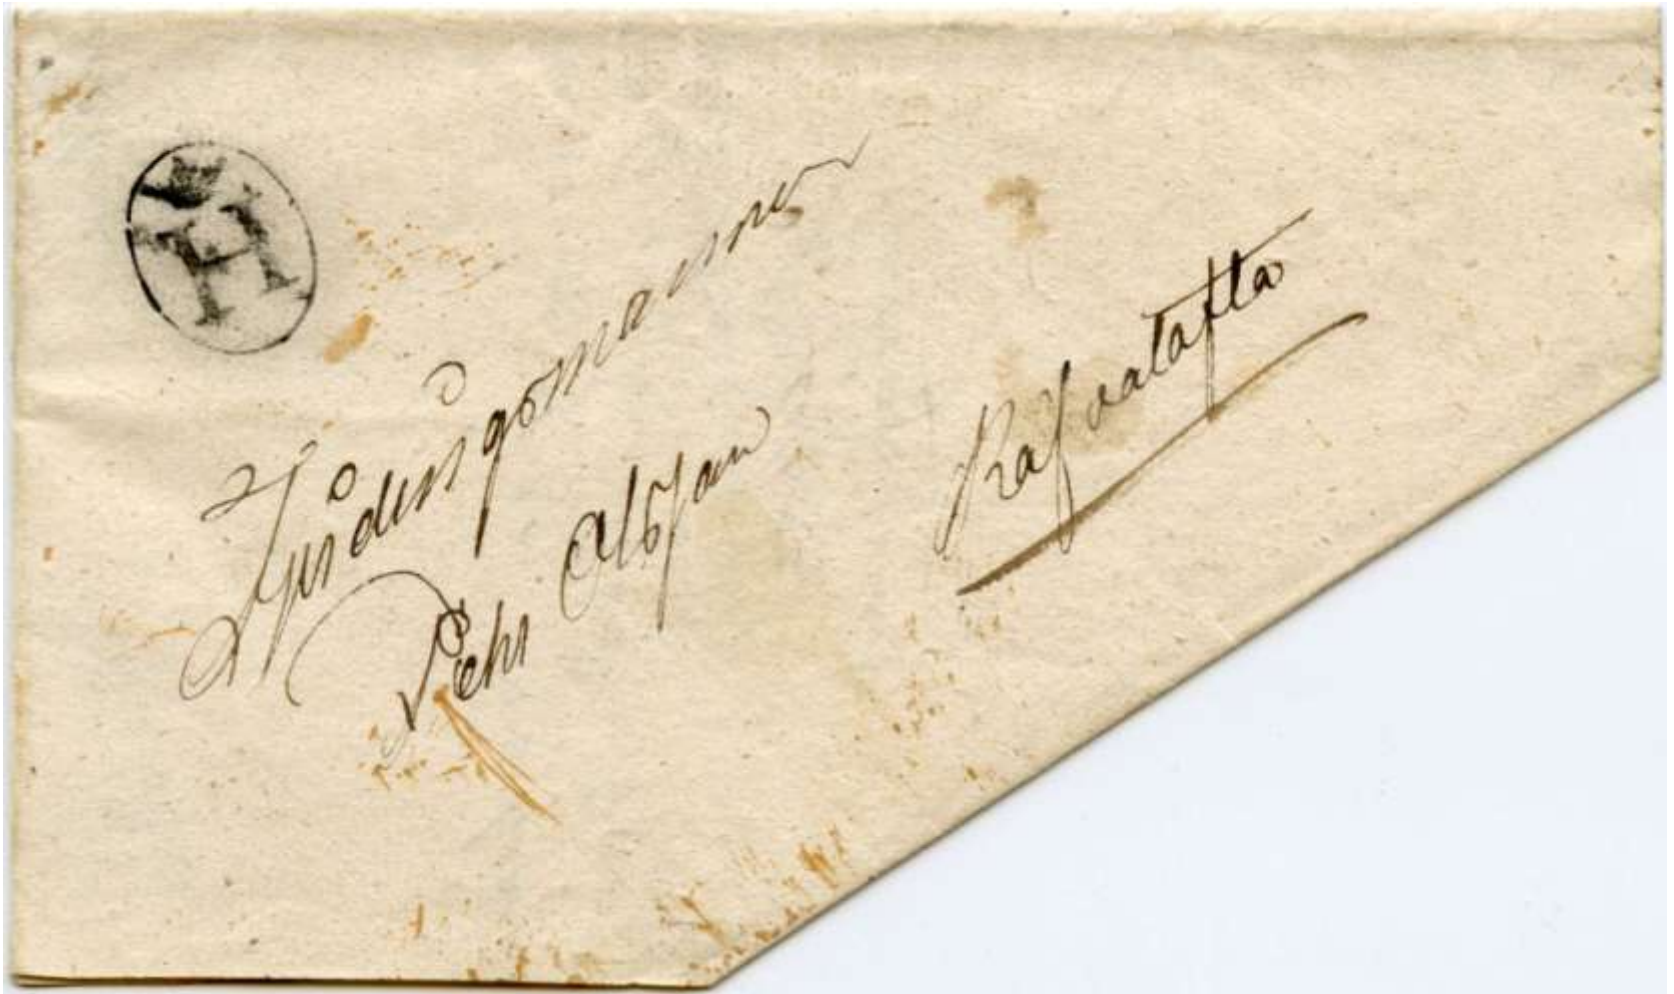 H
Fjärdingsmannen
Pehr Olsson
Rafvatofta